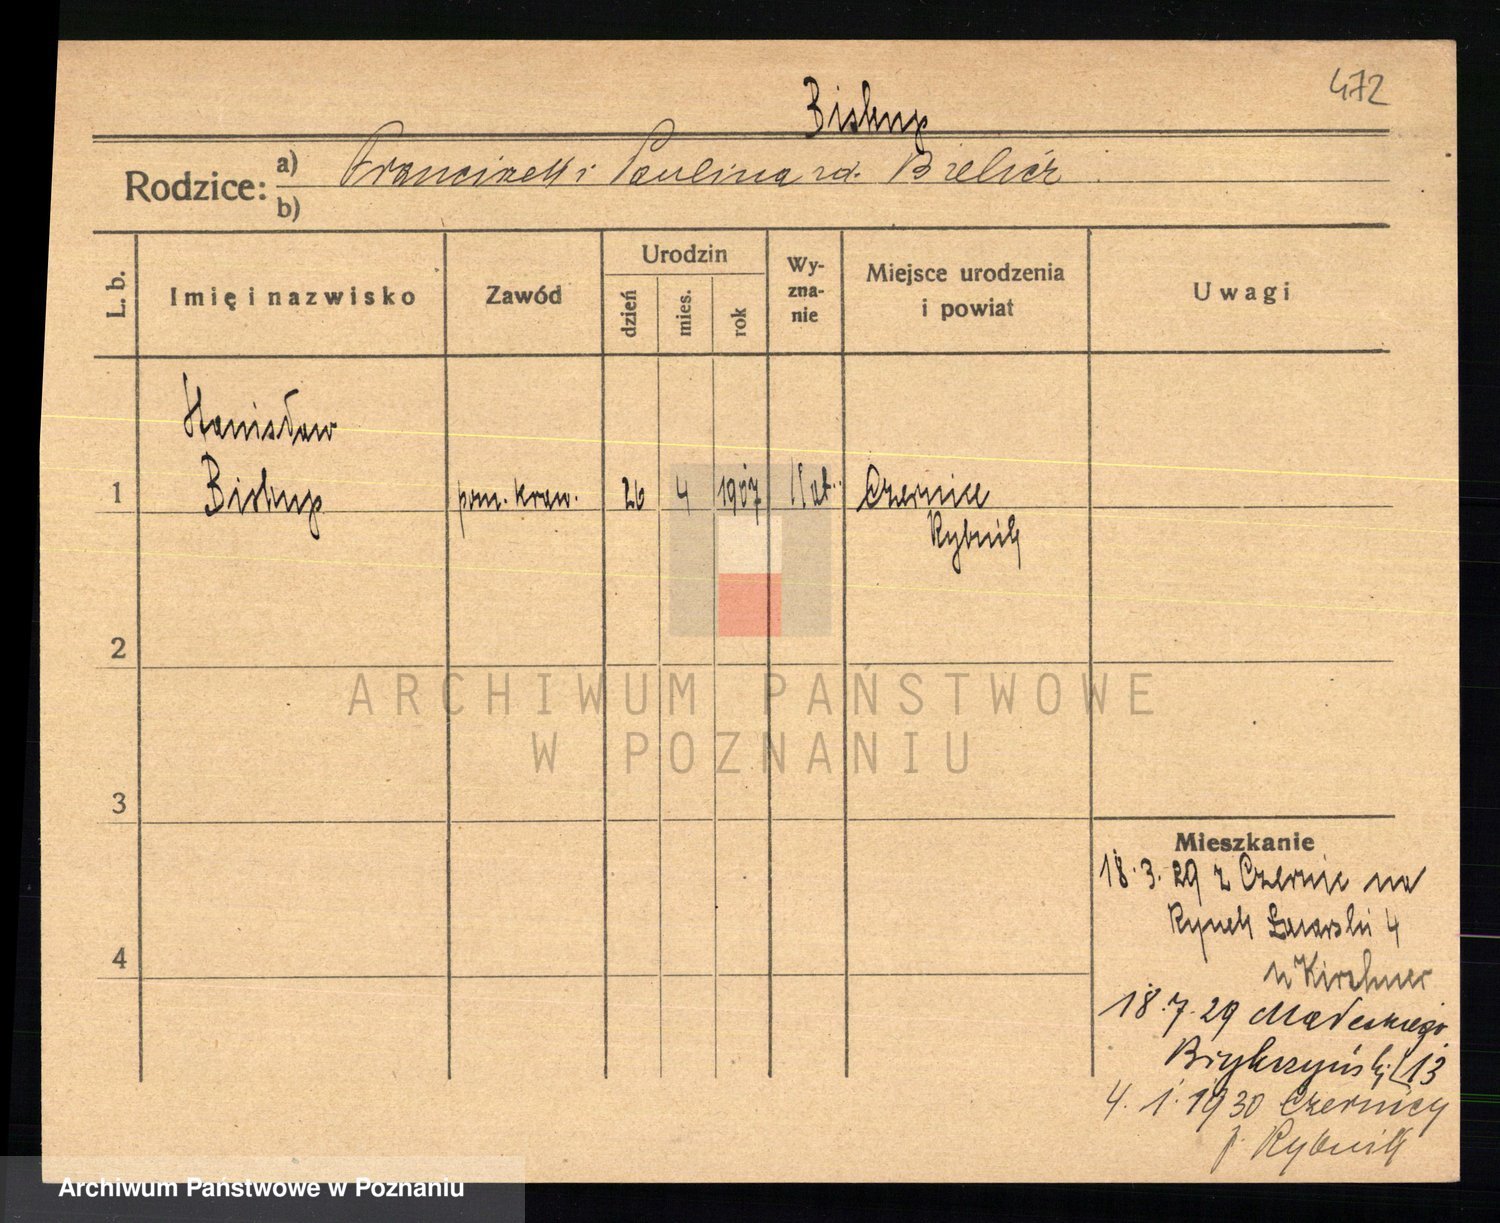 472
Biskup
Rodzice: a) Franciszek i Paulina zd. Bielicz
b)
L. b. Imię i nazwisko Zawód Urodzin dzień mies. rok Wy-zna-nie Miejsce urodzenia i powiat Uwagi
Stanisław
1 Biskup pom. kraw. 26 4 1907 kat. Czernice
Rybnik
2
ARCHIWUM PAŃSTWOWE
W POZNANIU
3
Mieszkanie
18.3.29 z Czernic na
Rynek Łazarski 4
u Kirchner
4
18.7.29 Małeckiego
13
4.1.1930 Czernicy
p. Rybnik
Archiwum Państwowe w Poznaniu